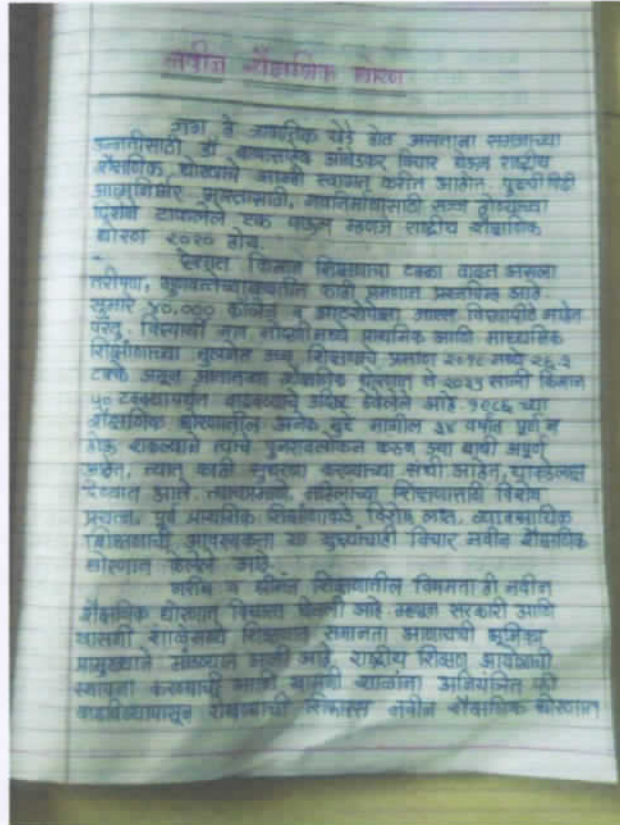 नवीन शैक्षणिक धोरण
जग हे जागतिक खेडे होत असताना समाजाच्या
उन्नतीसाठी डॉ बाबासाहेब आंबेडकर विचार मंडळ राष्ट्रीय
शैक्षणिक धोरणाचे आम्ही स्वागत करीत आहोत. पुढची पिढी
आत्मनिर्भर नवनिर्माणासाठी सज्ज होण्याच्या
दिशेने टाकलेले एक पाऊल म्हणजे राष्ट्रीय शैक्षणिक
धोरण २०२० होय.
देशात किमान शिक्षणाचा टक्का वाढत असला
तरीपण, काही प्रमाणात प्रश्नचिन्ह आहे.
सुमारे ४०,००० कॉलेज व विद्यापीठे आहेत
परंतु, विद्यार्थी मध्ये प्राथमिक आणि माध्यमिक
शिक्षणाच्या तुलनेत उच्च शिक्षणाचे प्रमाण २०१८ मध्ये २६.३
टक्के असून शैक्षणिक धोरणात ते २०३५ साली किमान
५० टक्क्यापर्यंत वाढवण्याचे उद्दिष्ट ठेवलेले आहे. १९८६ च्या
शैक्षणिक धोरणातील अनेक मुद्दे मागील ३४ वर्षात पूर्ण न
होऊ शकल्याने त्यांचे पुनरावलोकन करून ज्या बाबी अपूर्ण
आहेत, त्यात काही सुधारणा करण्याच्या संधी आहेत,
देण्यात आले. त्याप्रमाणे, महिलांच्या शिक्षणासाठी विशेष
प्रयत्न, पूर्व प्राथमिक शिक्षणाकडे विशेष लक्ष, व्यावसायिक
शिक्षणाची आवश्यकता या मुद्द्यांचाही विचार नवीन शैक्षणिक
धोरणात केलेले आहे.
गरीब व श्रीमंत शिक्षणातील विषमता ही नवीन
शैक्षणिक धोरणात घेतली आहे म्हणून सरकारी आणि
खासगी शाळेमध्ये शिक्षणात समानता आणायची भूमिका
प्रामुख्याने आली आहे. राष्ट्रीय शिक्षण आयोगाची
स्थापना करण्याची आणि खासगी शाळांना अनियंत्रित फी
वाढविण्यापासून रोखण्याची शिफारस नवीन शैक्षणिक धोरणात